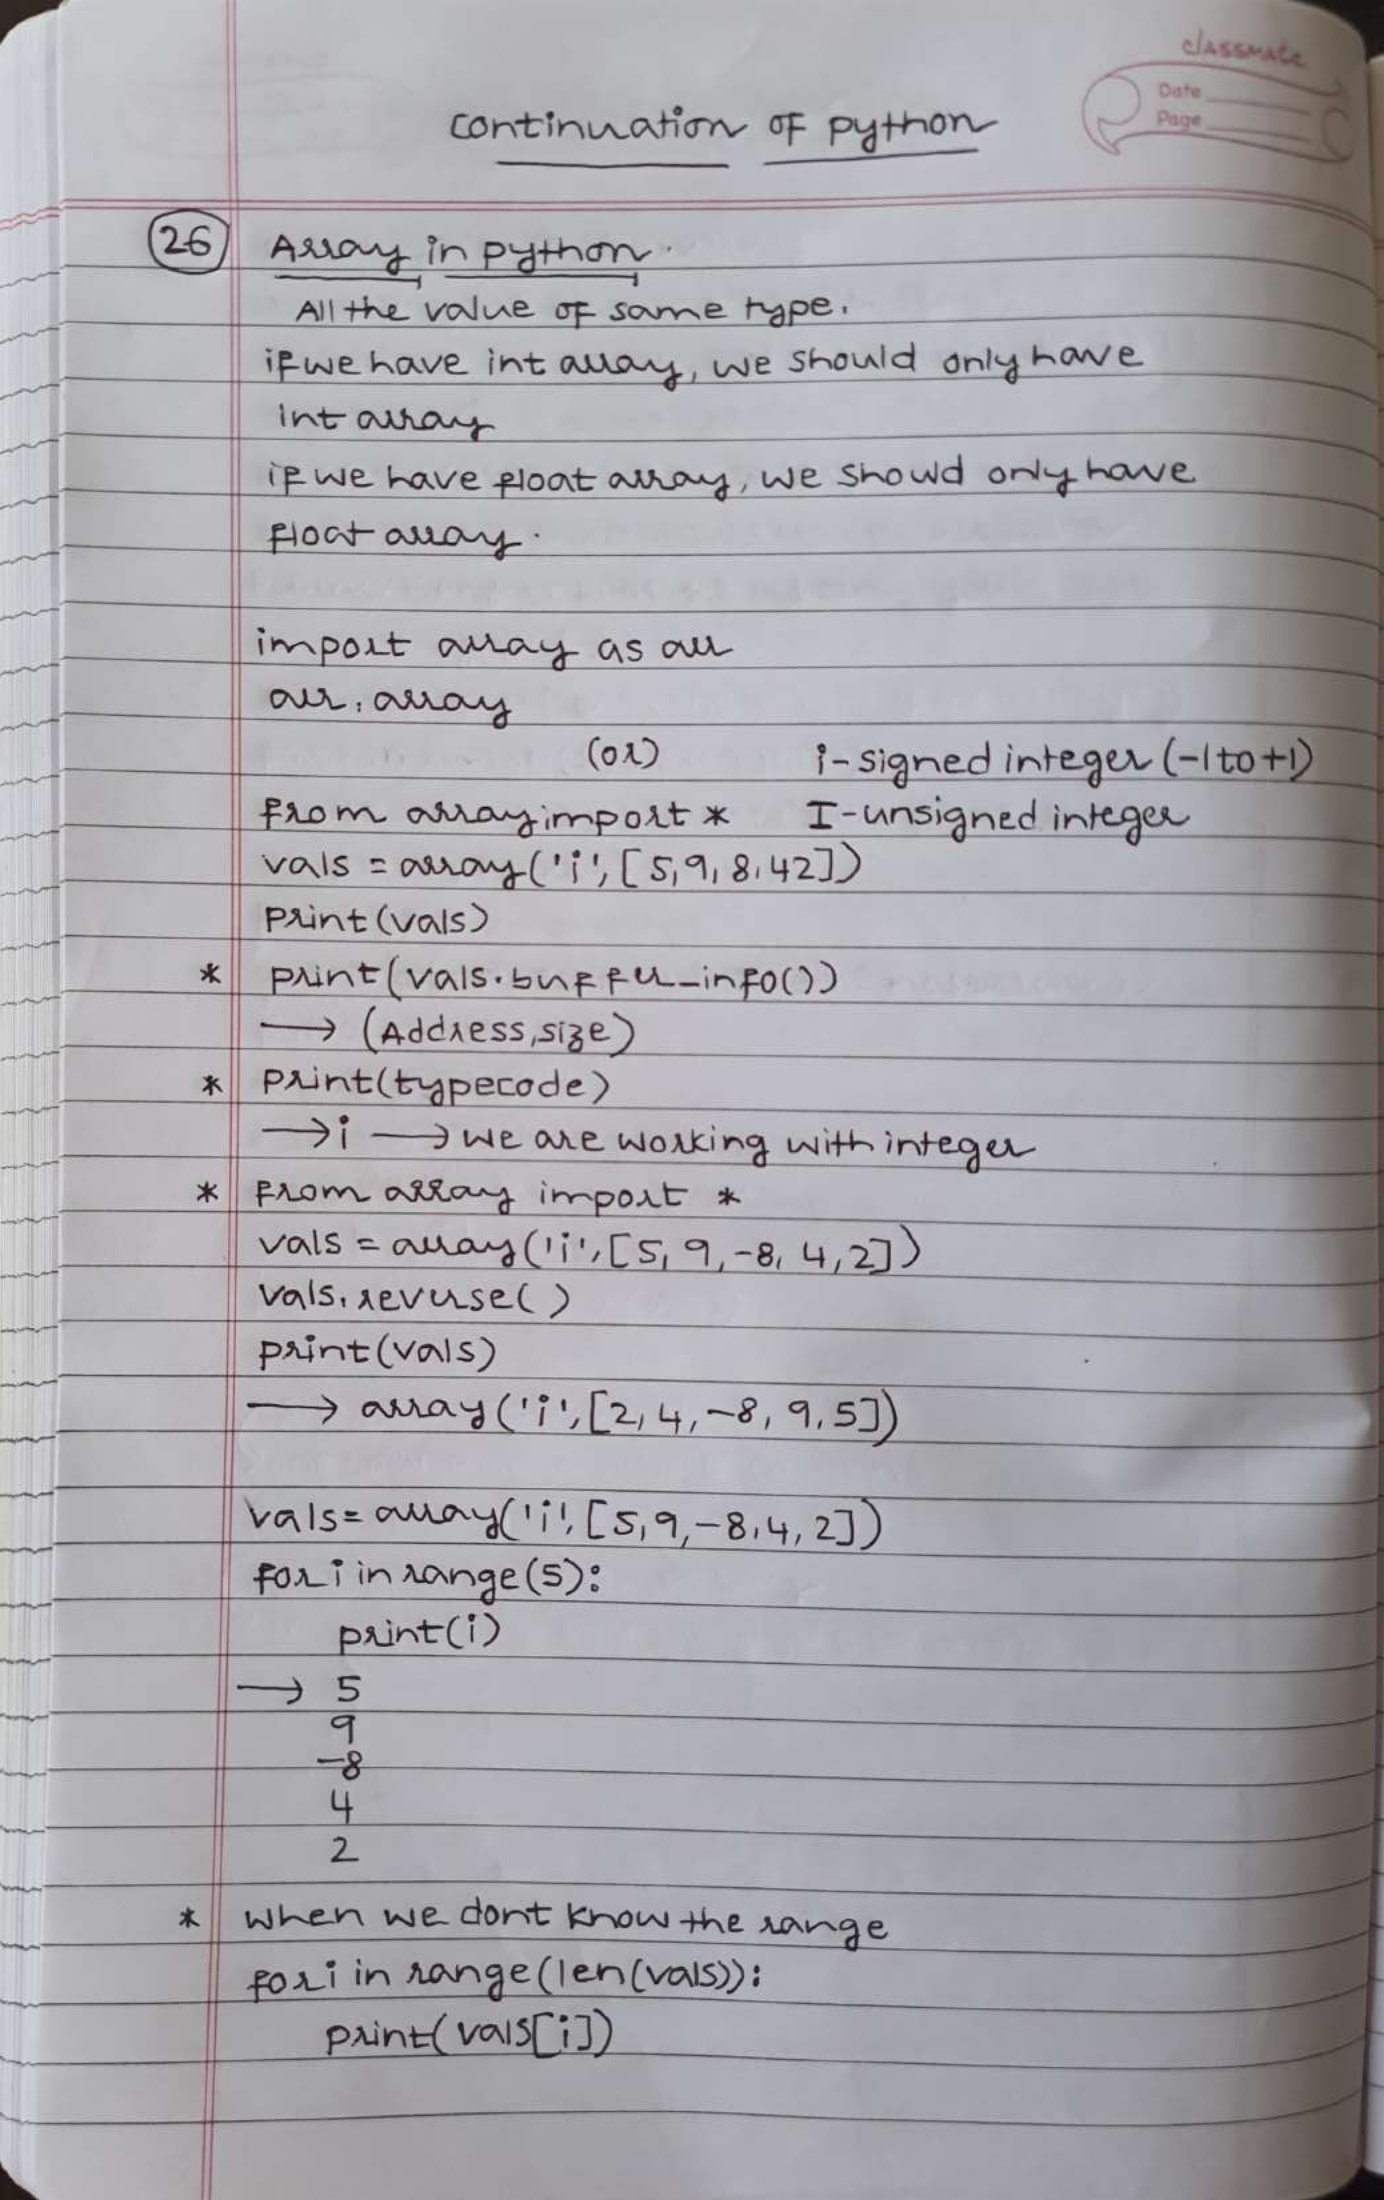 classmate
Date
Page
continuation of python
26 Array in python.
All the value of same type.
if we have int array, we should only have
int array
if we have float array, we should only have
float array.
import array as arr
arr.array
(or) i-signed integer (-1 to +1)
from array import * I-unsigned integer
vals = array('i', [5,9,8,42])
print(vals)
* print(vals.buffer_info())
→ (Address, size)
* print(typecode)
→ i → we are working with integer
* from array import *
vals = array('i', [5, 9, -8, 4, 2])
vals.reverse()
print(vals)
→ array('i', [2, 4, -8, 9, 5])
vals = array('i', [5, 9, -8, 4, 2])
for i in range(5):
print(i)
→ 5
9
-8
4
2
* when we dont know the range
for i in range(len(vals)):
print(vals[i])